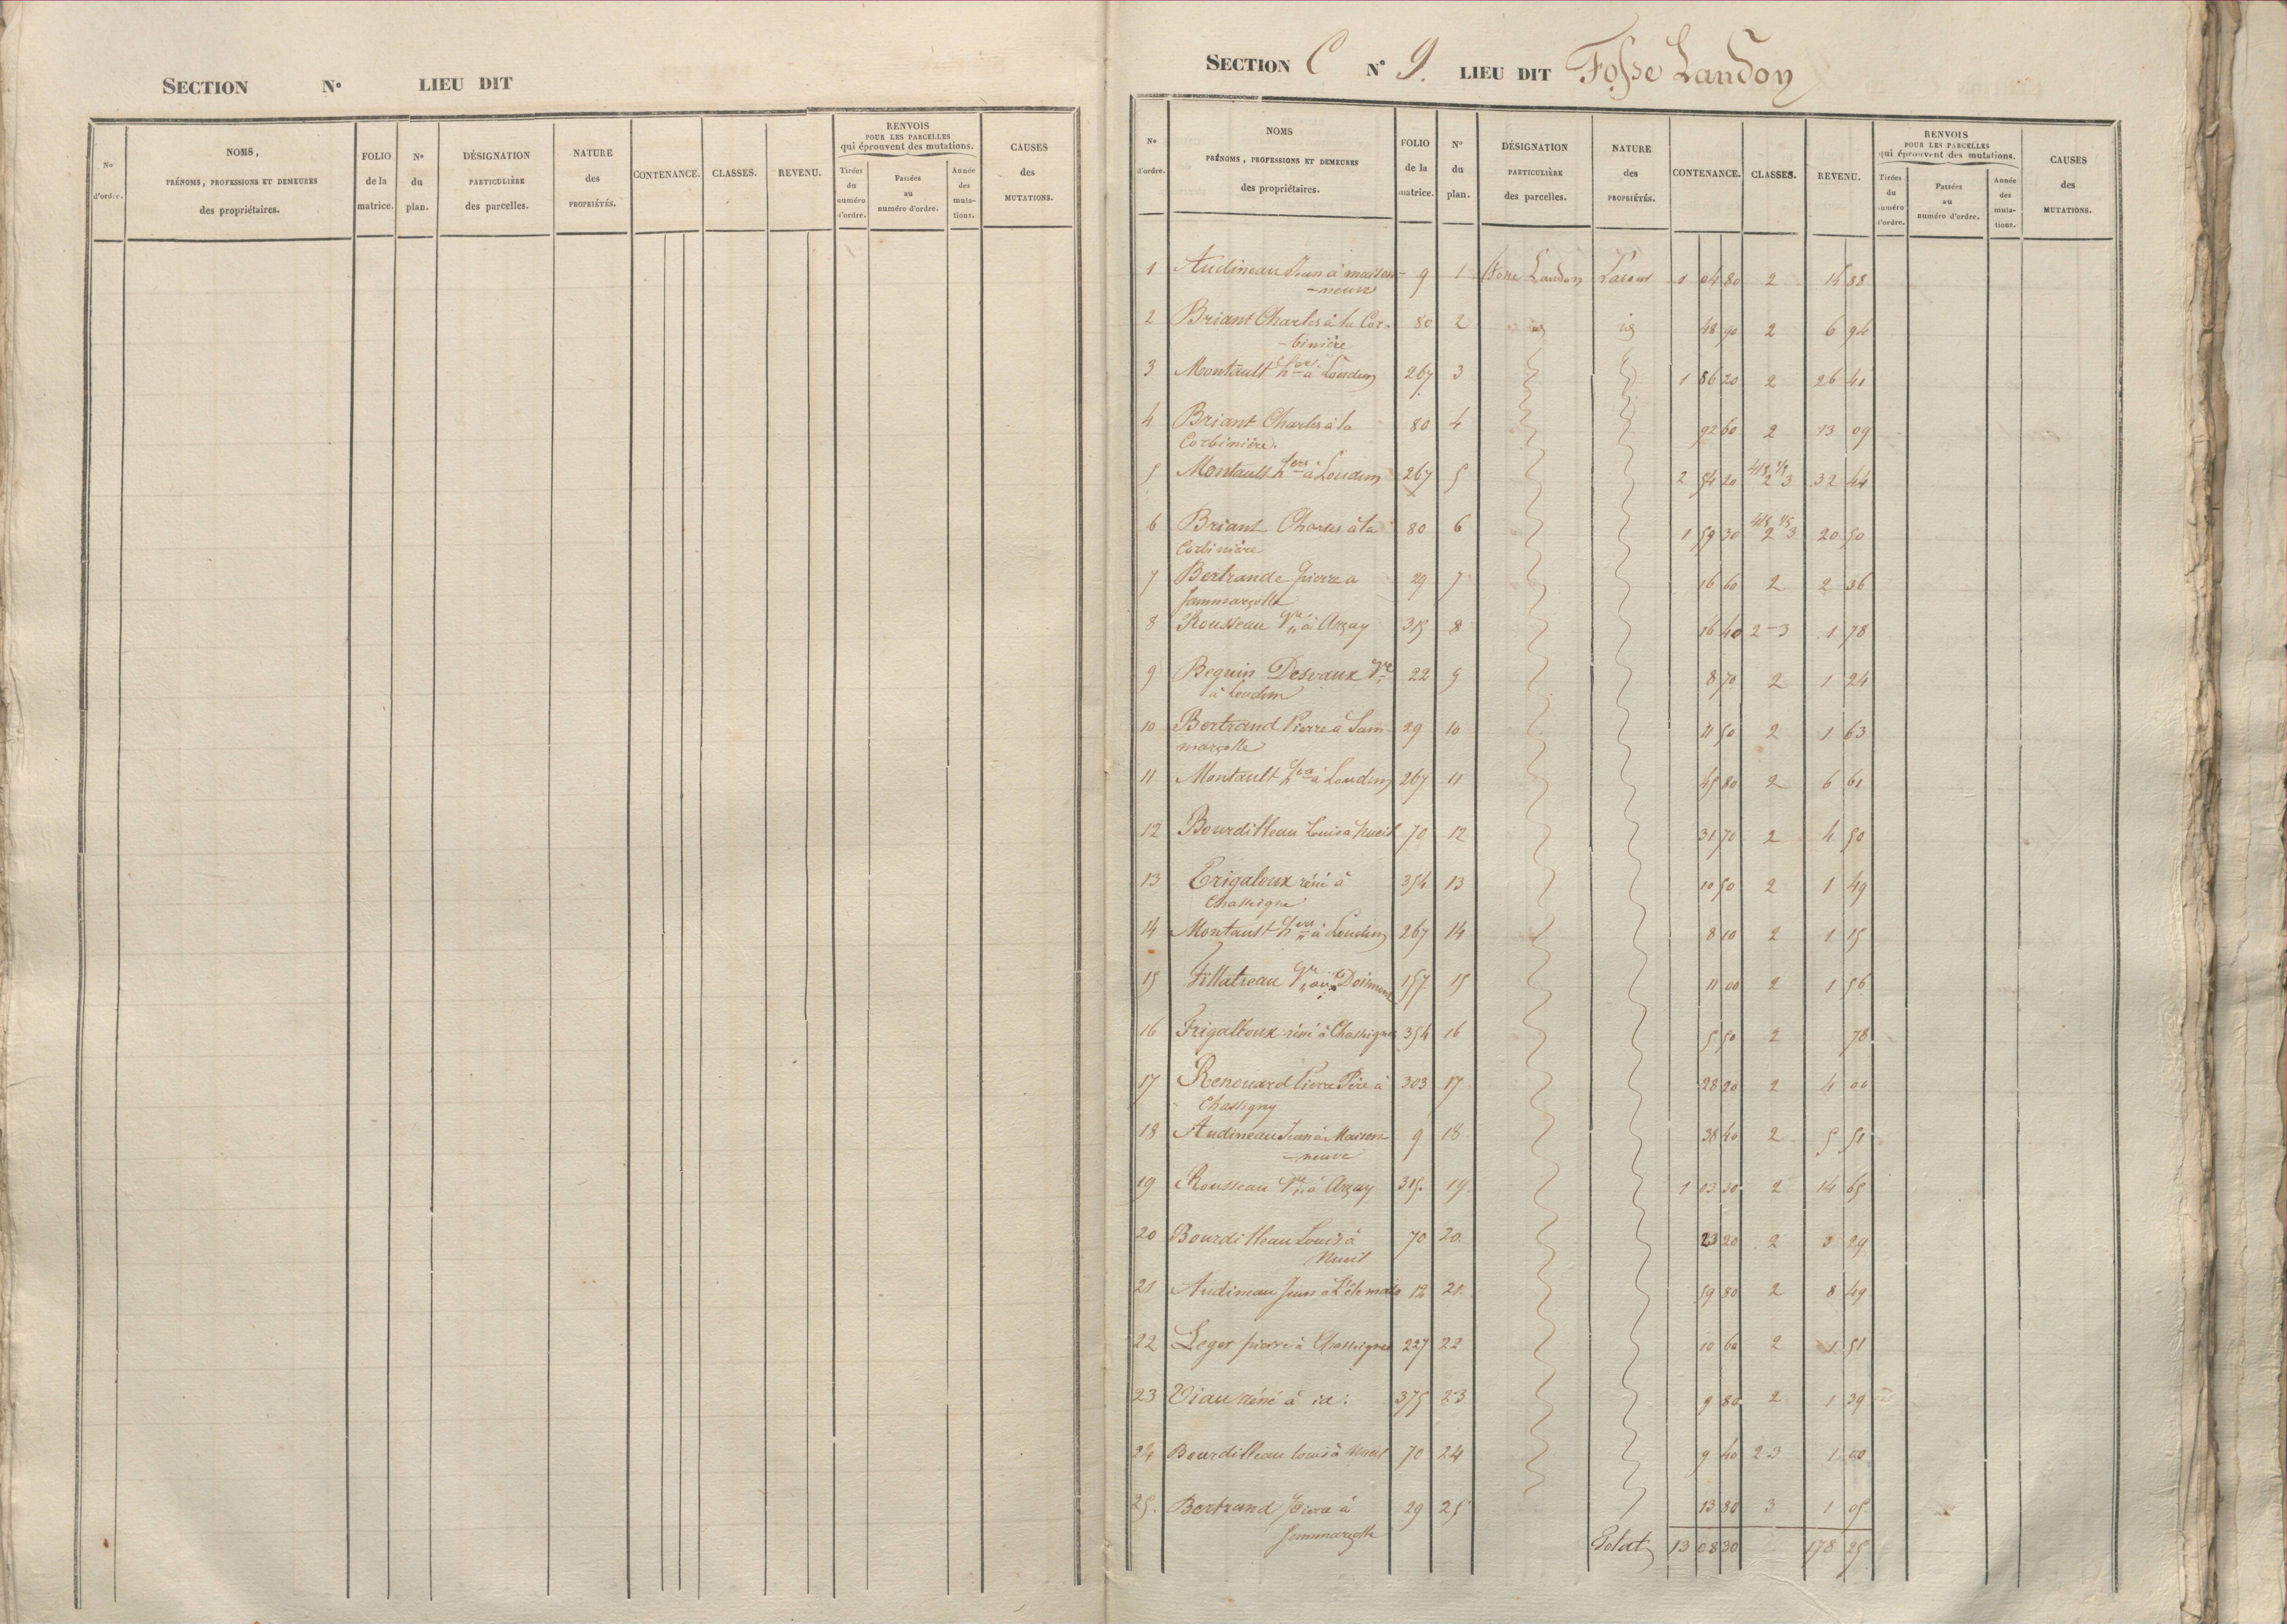 SECTION N° LIEU DIT
No d'ordre.
NOMS, PRÉNOMS, PROFESSIONS ET DEMEURES des propriétaires.
FOLIO de la matrice.
N° du plan.
DÉSIGNATION PARTICULIÈRE des parcelles.
NATURE des PROPRIÉTÉS.
CONTENANCE.
CLASSES.
REVENU.
RENVOIS POUR LES PARCELLES qui éprouvent des mutations.
Tirées du numéro d'ordre.
Passées au numéro d'ordre.
Année des muta-tions.
CAUSES des MUTATIONS.
SECTION C N° 9. LIEU DIT Fosse Landon
No d'ordre.
NOMS PRÉNOMS, PROFESSIONS ET DEMEURES des propriétaires.
FOLIO de la matrice.
N° du plan.
DÉSIGNATION PARTICULIÈRE des parcelles.
NATURE des PROPRIÉTÉS.
CONTENANCE.
CLASSES.
REVENU.
RENVOIS POUR LES PARCELLES qui éprouvent des mutations.
Tirées du numéro d'ordre.
Passées au numéro d'ordre.
Année des muta-tions.
CAUSES des MUTATIONS.
1 Audineau Jean à maison- 9 1 Fosse Landon Labour 1 04 80 2 14 88
-neuve
2 Briant Charles à la Cor- 80 2 id id 48 90 2 6 94
-binière
3 Montault hers à Loudun 267 3 1 86 20 2 26 41
4 Briant Charles à la 80 4 92 60 2 13 09
Corbinière.
5 Montault hers à Loudun 267 5 2 54 20 4/5 1/5 2 3 32 44
6 Briant Charles à la 80 6 1 59 30 4/5 1/5 2 3 20 50
Corbinière
7 Bertrande pierre a 29 7 16 60 2 2 36
Sammarçolle
8 Rousseau Ve à Arçay 315 8 16 40 2-3 1 78
9 Bequin Desvaux Ve 22 9 8 70 2 1 24
à Loudun
10 Bertrand Pierre à Sam 29 10 11 50 2 1 63
marçolle
11 Montault hers à Loudun 267 11 45 80 2 6 61
12 Bourdilleau Louis à Nueil 70 12 31 70 2 4 50
13 Trigaloux réné à 354 13 10 50 2 1 49
Chassigne
14 Montault hers à Loudun 267 14 8 10 2 1 15
15 fillatreau Ve aux 157 15 11 00 2 1 56
16 Trigalloux réné à Chassigne 354 16 5 50 2 78
17 Renouard Pierre Père à 303 17 28 20 2 4 00
Chassigny
18 Audineau Jean à Maison 9 18 38 40 2 5 51
-neuve
19 Rousseau Ve à Arçay 315. 19. 1 03 30 2 14 65
20 Bourdilleau Louis à 70 20. 23 20 2 3 29
Nueil
21 Audineau Jean à 12 21. 59 80 2 8 49
22 Leger pierre à Chassignes 227 22 10 60 2 1 51
23 Viau réné à id: 375 23 9 80 2 1 39
24 Bourdilleau louis à Nueil 70 24 9 40 2 3 1 00
25. Bertrand Pierre à 29 25 13 80 3 1 05
Sammarçolle
Total 13 08 30 178 25